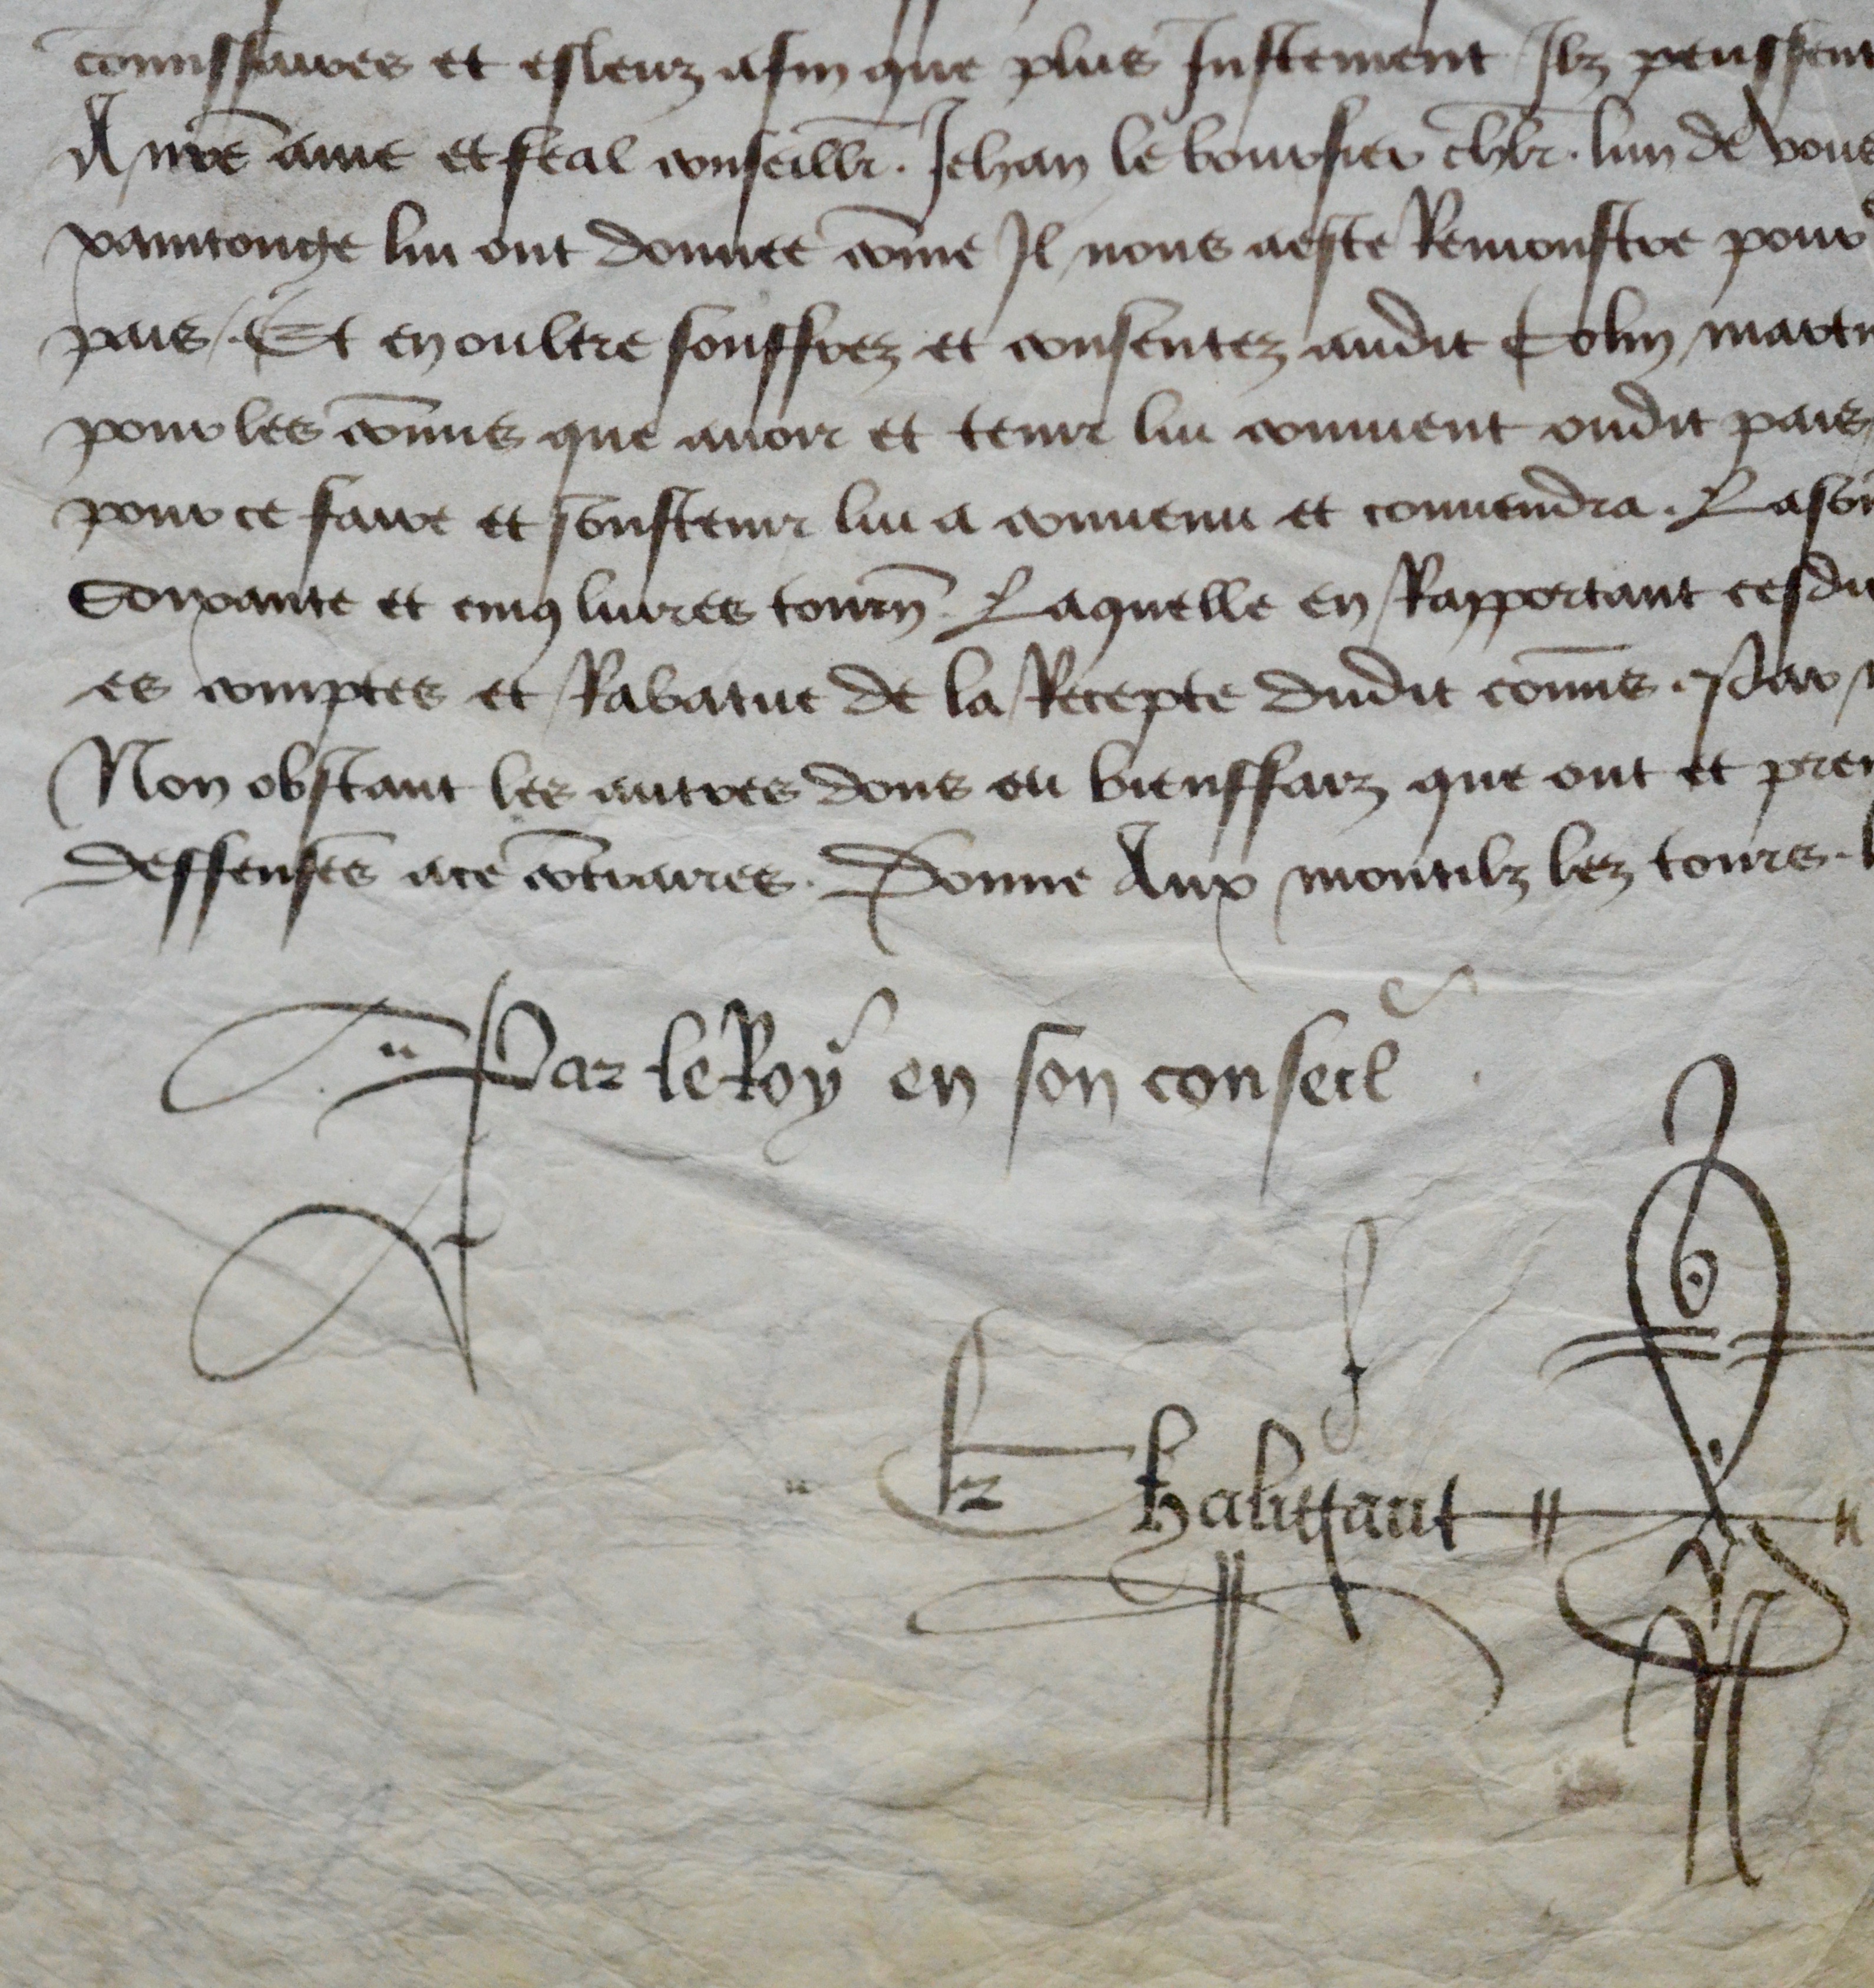 commissaires et esleuz afin que plus Justement Ilz peussent
A nre ame et feal conseillr. Jehan le boursier chlr. lun de vous
xaintonge lui ont donnee come Il nous a este Remonstre pour
pais. Et en oultre souffrez et consentez audit Colin martin
pour les commis que avoir et tenir lui convient oudit pais
pour ce faire et soustenir lui a convenu et convendra. La
Soixante et cinq livres tourn. Laquelle en Rapportant cesdit
es comptes et Rabatue de la Recepte dudit commis. Par
Non obstant les autres dons ou bienffaiz que ont et pren
deffenses a ce contraires. Donne Aux montilz lez tours.
Par le Roy en son conseil